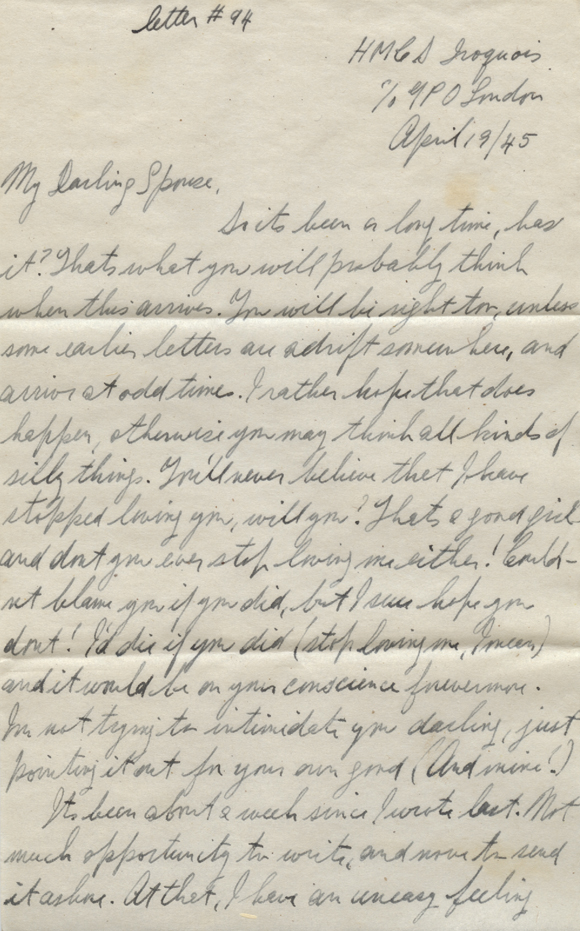 letter # 94
HMCS Iroquois
℅ GPO London
April 19/45
My Darling Spouse,
So its been a long time, has
it? Thats what you will probably think
when this arrives. You will be right too, unless
some earlier letters are adrift somewhere, and
arrive at odd times. I rather hope that does
happen, otherwise you may think all kinds of
silly things. You'll never believe that I have
stopped loving you, will you? Thats a good girl
and dont you ever stop loving me either! Could-
nt blame you if you did, but I sure hope you
dont! I'd die if you did (stop loving me, I mean)
and it would be on your conscience forevermore.
Im not trying to intimidate you darling, just
pointing it out for your own good, (And mine!)
Its been about a week since I wrote last. Not
much opportunity to write, and none to send
it ashore. At that, I have an uneasy feeling